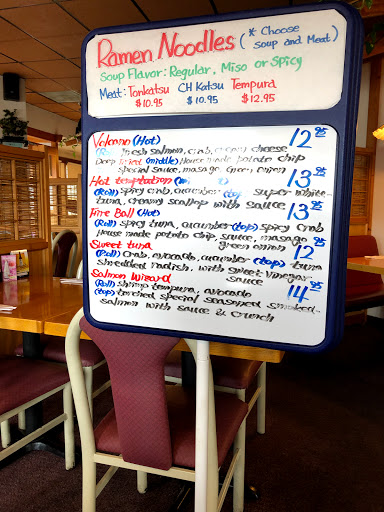 Ramen Noodles (* Choose
soup and Meat)
Soup Flavor: Regular, Miso or Spicy
Meat: Tonkatsu CH Katsu Tempura
$10.95 $10.95 $12.95
Volcano (Hot) 12.95
fresh salmon, crab, cream cheese
Deep fried (middle) House made potato chip
special sauce, masago, green onion
Hot temptation 13.95
(Roll) spicy crab, cucumber (top) super white
tuna, creamy scallop with sauce
Fire Ball (Hot) 13.95
(Roll) spicy tuna, cucumber (top) spicy crab
House made potato chip, sauce, masago
green onion
Sweet tuna 12.95
(Roll) crab, avocado, cucumber (top) tuna
shredded radish, with sweet vinegar
sauce
Salmon Wizard 14.95
(Roll) shrimp tempura, avocado
(top) torched special seasoned smoked
salmon with sauce & crunch